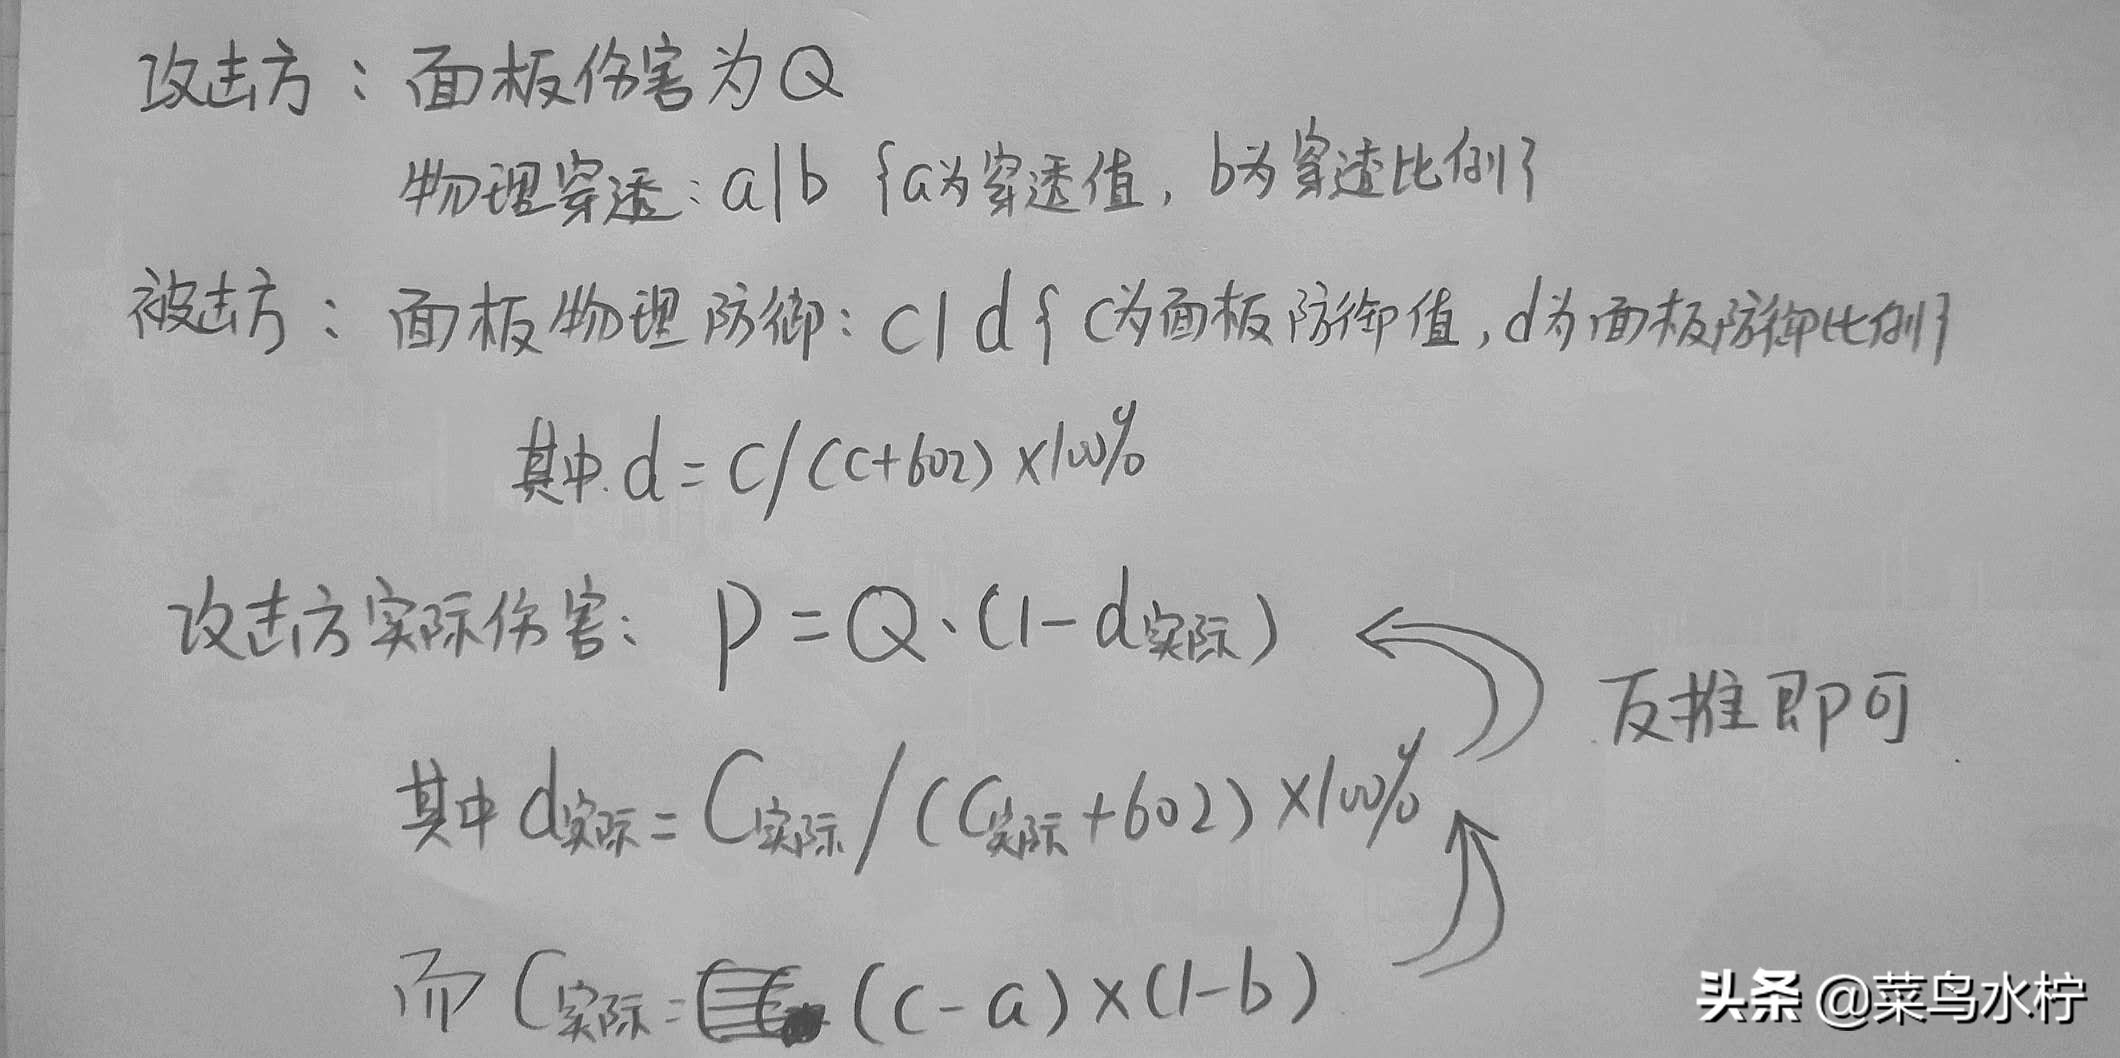 攻击方：面板伤害为Q
物理穿透：a|b {a为穿透值，b为穿透比例}
被击方：面板物理防御：c|d{c为面板防御值，d为面板防御比例}
其中.d=c/(c+602)×100%
攻击方实际伤害：P=Q·(1-d实际)
反推即可
其中d实际=C实际/(C实际+602)×100%
而C实际=(c-a)×(1-b)
头条 @菜鸟水柠